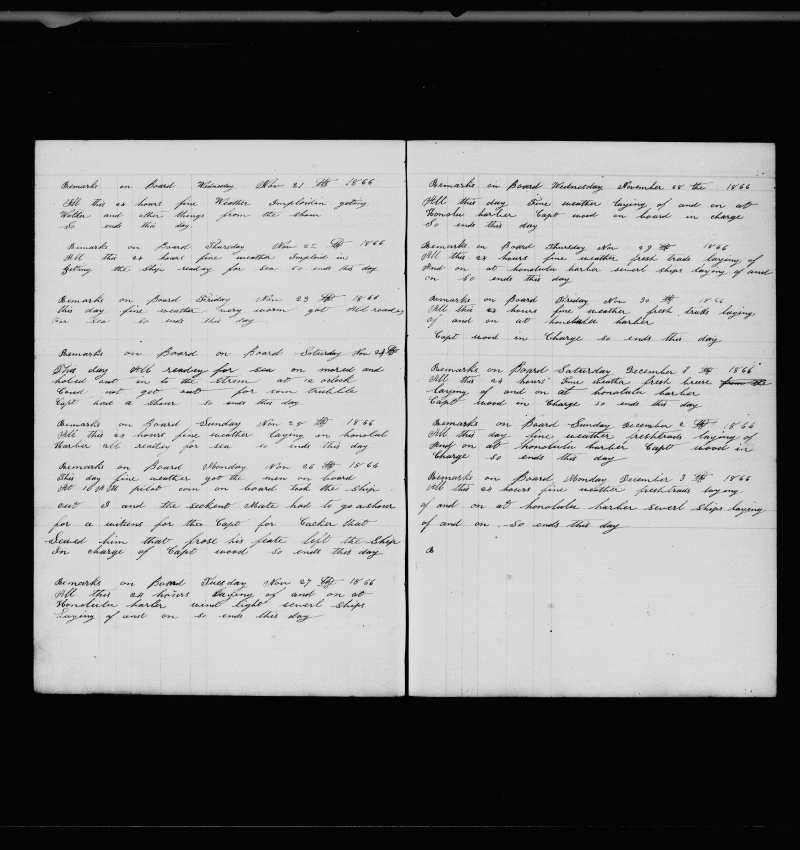 Remarks on Board Wednesday Nov 21 th 1866
All this 24 hours fine Weather Imploiden geting
Watter and other things from the shour
So ends this day
Remarks on Board Thursday Nov 22 th 1866
All this 24 hours fine weather Imploid in
Getting the Ship readay for sea so ends this day
Remarks on Board Firiday Nov 23 th 1866
this day fine weather very worm got All readay
for sea so ends this day
Remarks on Board on Board Saturday Nov 24 th
This day All readiy for sea on mored and
holed out in to the strem at 12 oclock
Could not get out for som trubble
Capt had a shour so ends this day
Remarks on Board Sunday Nov 25 th 1866
All this 24 hours fine weather laying in honolul
Harber all readiy for sea so ends this day
Remarks on Board Monday Nov 26 th 1866
This day fine weather got the men on board
At 10 A M pilot com on board took the Ship
out I and the seckent Mate had to go ashour
for a witens for the Capt for Cacher that
Sewed him that frose his feate left the Ship
In charge of Capt wood So ends this day
Remarks on Board Tuesday Nov 27 th 1866
All this 24 hours Laying of and on at
Honolulu harber wind light severl ships
Laying of and on so ends this day
Remarks on Board Wednesday November 28 the 1866
All this day Fine weather laying of and on at
Honolu harber Capt wood on board in charge
So ends this day
Remarks on Board Thursday Nov 29 th 1866
All this 24 hours fine weather fresh trads laying of
And on at honolulu harber severl ships laying of and
on So ends this day
Remarks on Board Firiday Nov 30 th 1866
All this 24 hours fine weather fresh trads laying
of and on at honolulu harber
Capt wood in Charge so ends this day
Remarks on Board Saturday December 1 th 1866
All this 24 hours Fine weather fresh breese from the
laying of and on at honolulu harber
Capt wood in Charge so ends this day
Remarks on Board Sunday December 2 th 1866
All this day fine weather freshtrads laying of
And on at honolulu harber Capt wood in
Charge so ends this day
Remarks on Board Monday December 3 th 1866
All this 24 hours fine weather freshtrads laying
of and on at honolulu harber severl Ships laying
of and on So ends this day
R